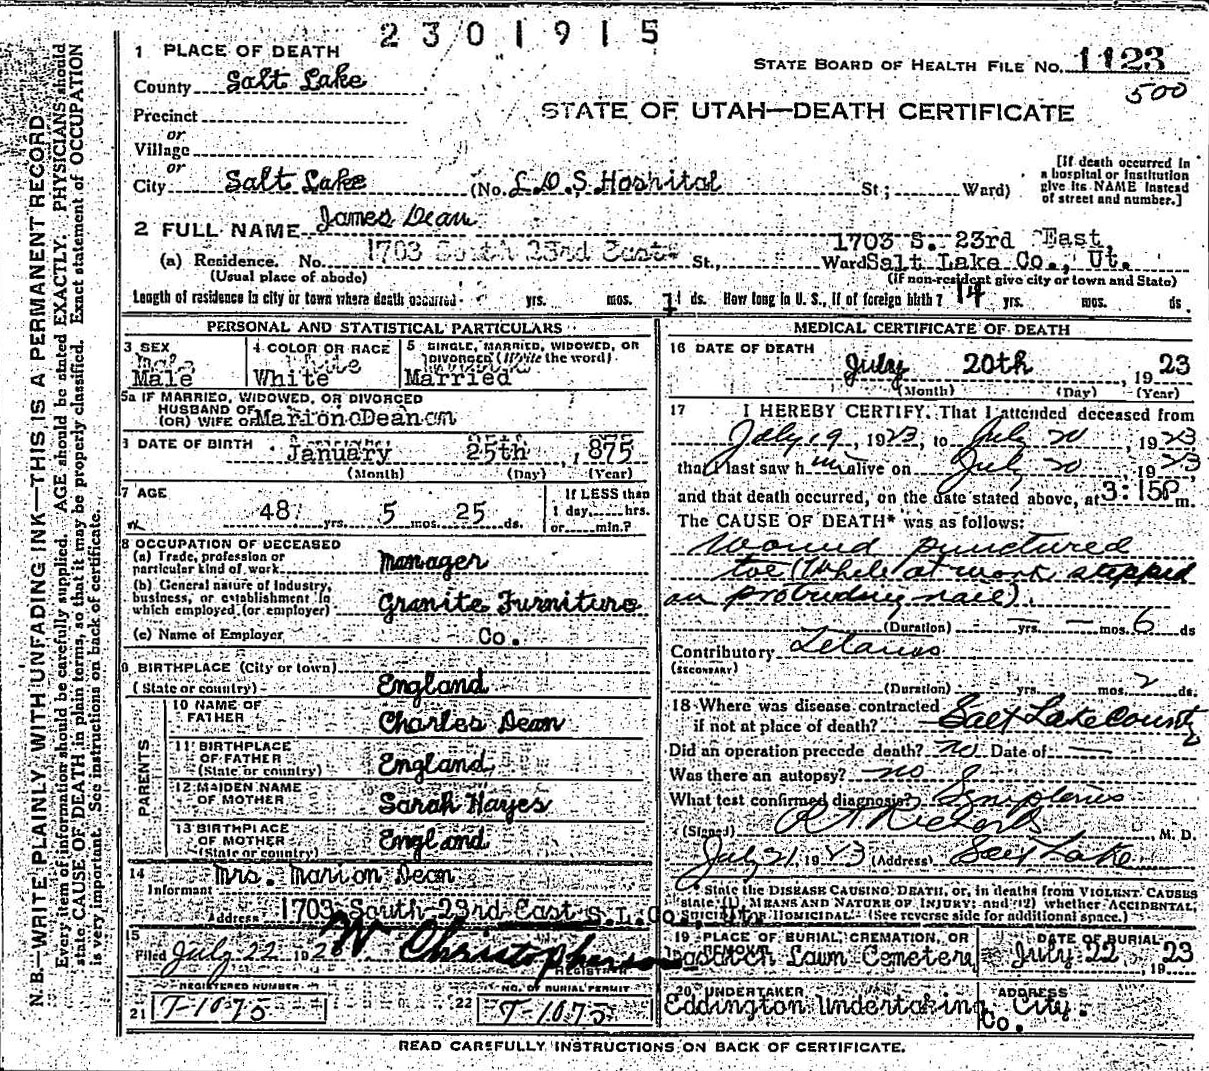 2301915
1 PLACE OF DEATH
STATE BOARD OF HEALTH FILE NO. 1123
County Salt Lake
500
STATE OF UTAH—DEATH CERTIFICATE
Precinct
or
Village
or
City Salt Lake (No. L.D.S. Hospital St; Ward)
[If death occurred in
a hospital or institution
give its NAME instead
of street and number.]
2 FULL NAME James Dean
(a) Residence. No. 1703 South 23rd East St., Ward 1703 S. 23rd East, Salt Lake Co., Ut.
(Usual place of abode) (If non-resident give city or town and State)
Length of residence in city or town where death occurred yrs. mos. 1 ds. How long in U. S., if of foreign birth? 14 yrs. mos. ds.
PERSONAL AND STATISTICAL PARTICULARS
3 SEX
Male
4 COLOR OR RACE
White
5 SINGLE, MARRIED, WIDOWED, OR
DIVORCED (Write the word)
Married
5a IF MARRIED, WIDOWED, OR DIVORCED
HUSBAND OF
(OR) WIFE OF Marion Dean
6 DATE OF BIRTH January 25th, 1875
(Month) (Day) (Year)
7 AGE
48 yrs. 5 mos. 25 ds.
If LESS than
1 day, hrs.
or min.?
8 OCCUPATION OF DECEASED
(a) Trade, profession or
particular kind of work Manager
(b) General nature of industry,
business, or establishment in
which employed (or employer) Granite Furniture
(c) Name of Employer Co.
9 BIRTHPLACE (City or town)
(State or country) England
PARENTS
10 NAME OF
FATHER Charles Dean
11 BIRTHPLACE
OF FATHER
(State or country) England
12 MAIDEN NAME
OF MOTHER Sarah Hayes
13 BIRTHPLACE
OF MOTHER
(State or country) England
14
Informant Mrs. Marion Dean
Address 1703 South 23rd East S.L.Co., Utah
15
Filed July 22 192 W Christopherson
REGISTRAR
REGISTERED NUMBER
21 T-1075
NO. OF BURIAL PERMIT
22 T-1075
MEDICAL CERTIFICATE OF DEATH
16 DATE OF DEATH
July 20th, 1923
(Month) (Day) (Year)
17 I HEREBY CERTIFY, That I attended deceased from
July 19, 1923, to July 20, 1923
that I last saw him alive on July 20 1923,
and that death occurred, on the date stated above, at 3:15P m.
The CAUSE OF DEATH* was as follows:
Wound punctured
toe (While at work stepped
on protruding nail).
(Duration) — yrs. — mos. 6 ds
Contributory Tetanus
(SECONDARY)
(Duration) yrs. mos. 2 ds.
18 Where was disease contracted
if not at place of death? Salt Lake County
Did an operation precede death? no Date of —
Was there an autopsy? no
What test confirmed diagnosis? Symptoms
(Signed) M. D.
July 21, 1923 (Address) Salt Lake
* State the DISEASE CAUSING DEATH, or, in deaths from VIOLENT CAUSES
state (1) MEANS AND NATURE OF INJURY; and (2) whether ACCIDENTAL,
SUICIDAL or HOMICIDAL. (See reverse side for additional space.)
19 PLACE OF BURIAL, CREMATION, OR
REMOVAL
Wasatch Lawn Cemetery
DATE OF BURIAL
July 22, 1923
20 UNDERTAKER
Eddington Undertaking Co.
ADDRESS
City.
READ CAREFULLY INSTRUCTIONS ON BACK OF CERTIFICATE.
N. B.—WRITE PLAINLY, WITH UNFADING INK—THIS IS A PERMANENT RECORD.
Every item of information should be carefully supplied. AGE should be stated EXACTLY. PHYSICIANS should
state CAUSE OF DEATH in plain terms, so that it may be properly classified. Exact statement of OCCUPATION
is very important. See instructions on back of certificate.